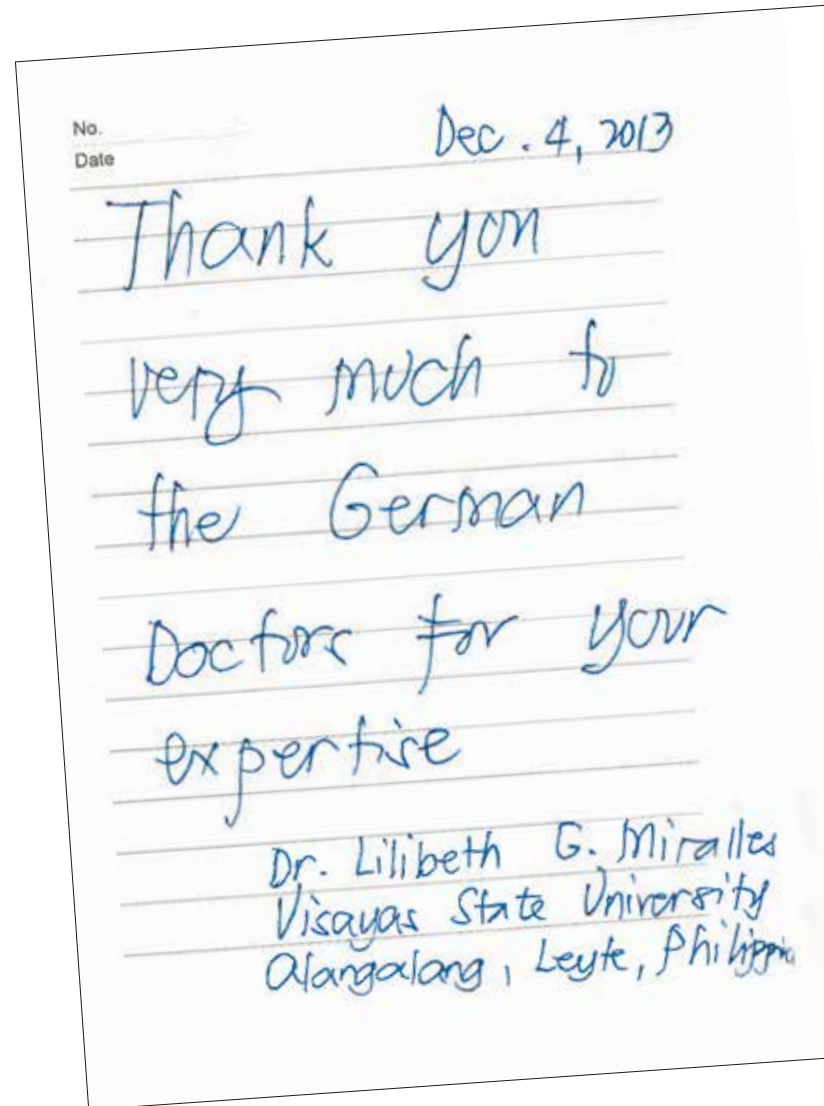 No.
Date
Dec. 4, 2013
Thank you
very much to
the German
Doctors for your
expertise
Dr. Lilibeth G. Miralles
Visayas State University
Alangalang, Leyte, Philippin